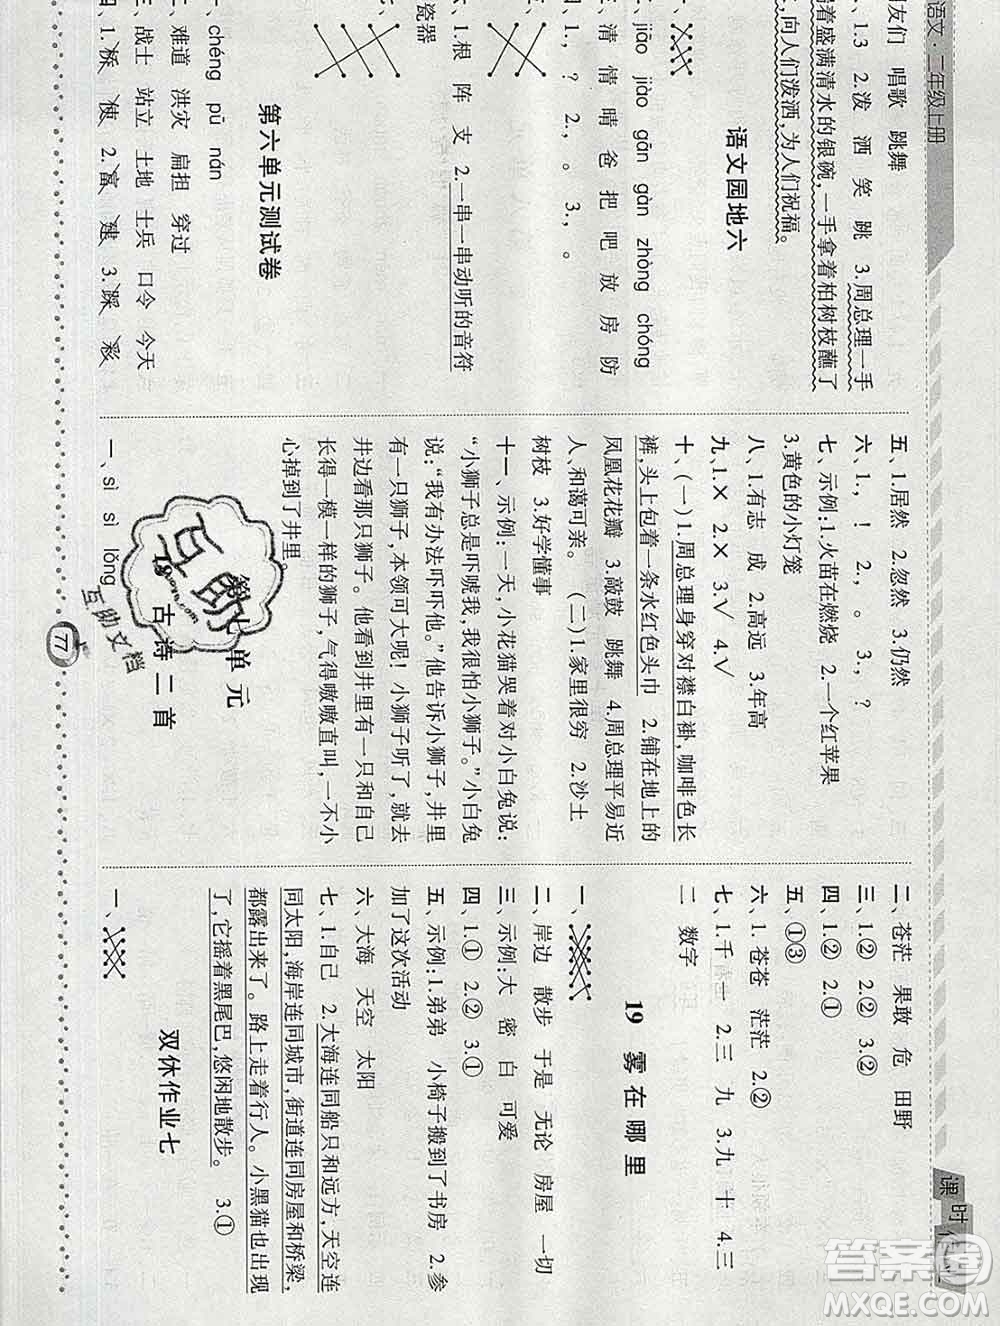 语文·二年级上册
朋友们 唱歌 跳舞
1.3 2.泼 洒 笑 跳 3.周总理一手
端着盛满清水的银碗,一手拿着柏树枝蘸了
向人们泼洒,为人们祝福。
语文园地六
jiāo jiào gān gàn zhòng chóng
清 情 晴 爸 把 吧 放 房 防
四、1., ? 2., 。 3., 。
六、1.根 阵 支 2.一串一串动听的音符
瓷器
第六单元测试卷
一、chéng pū nán
二、难道 洪灾 扁担 穿过
三、战士 站立 土地 士兵 口令 今天
四、1.桥 使 2.富 建 3.踩 彩
五、1.居然 2.忽然 3.仍然
六、1., ! 2., 。 3., ?
七、示例:1.火苗在燃烧 2.一个红苹果
3.黄色的小灯笼
八、1.有志 成 2.高远 3.年高
九、1.✕ 2.✕ 3.√ 4.√
十、(一)1.周总理身穿对襟白褂,咖啡色长
裤,头上包着一条水红色头巾 2.铺在地上的
凤凰花花瓣 3.敲鼓 跳舞 4.周总理平易近
人、和蔼可亲。 (二)1.家里很穷 2.沙土
树枝 3.好学懂事
十一、示例:一天,小花猫哭着对小白兔说:
“小狮子总是吓唬我,我很怕小狮子。”小白兔
说:“我有办法吓吓他。”他告诉小狮子,井里
有一只狮子,本领可大呢!小狮子听了,就去
井边看那只狮子。他看到井里有一只和自己
长得一模一样的狮子,气得嗷嗷直叫,一不小
心掉到了井里。
第七单元
18 古诗二首
一、sì sì lǒng
二、苍茫 果敢 危 田野
三、1.② 2.① 3.②
四、1.② 2.①
五、①③
六、1.苍苍 茫茫 2.②
七、1.千 一 2.三 九 3.九 十 4.三
二 数字
19 雾在哪里
一、
二、岸边 散步 于是 无论 房屋 一切
三、示例:大 密 白 可爱
四、1.① 2.② 3.①
五、示例:1.弟弟 小椅子搬到了书房 2.参
加了这次活动
六、大海 天空 太阳
七、1.自己 2.大海连同船只和远方,天空连
同太阳,海岸连同城市,街道连同房屋和桥梁,
都露出来了。路上走着行人。小黑猫也出现
了,它摇着黑尾巴,悠闲地散步。 3.①
双休作业七
一、
77
课时作业
互助
互助文档
答案圈
MXQE.COM